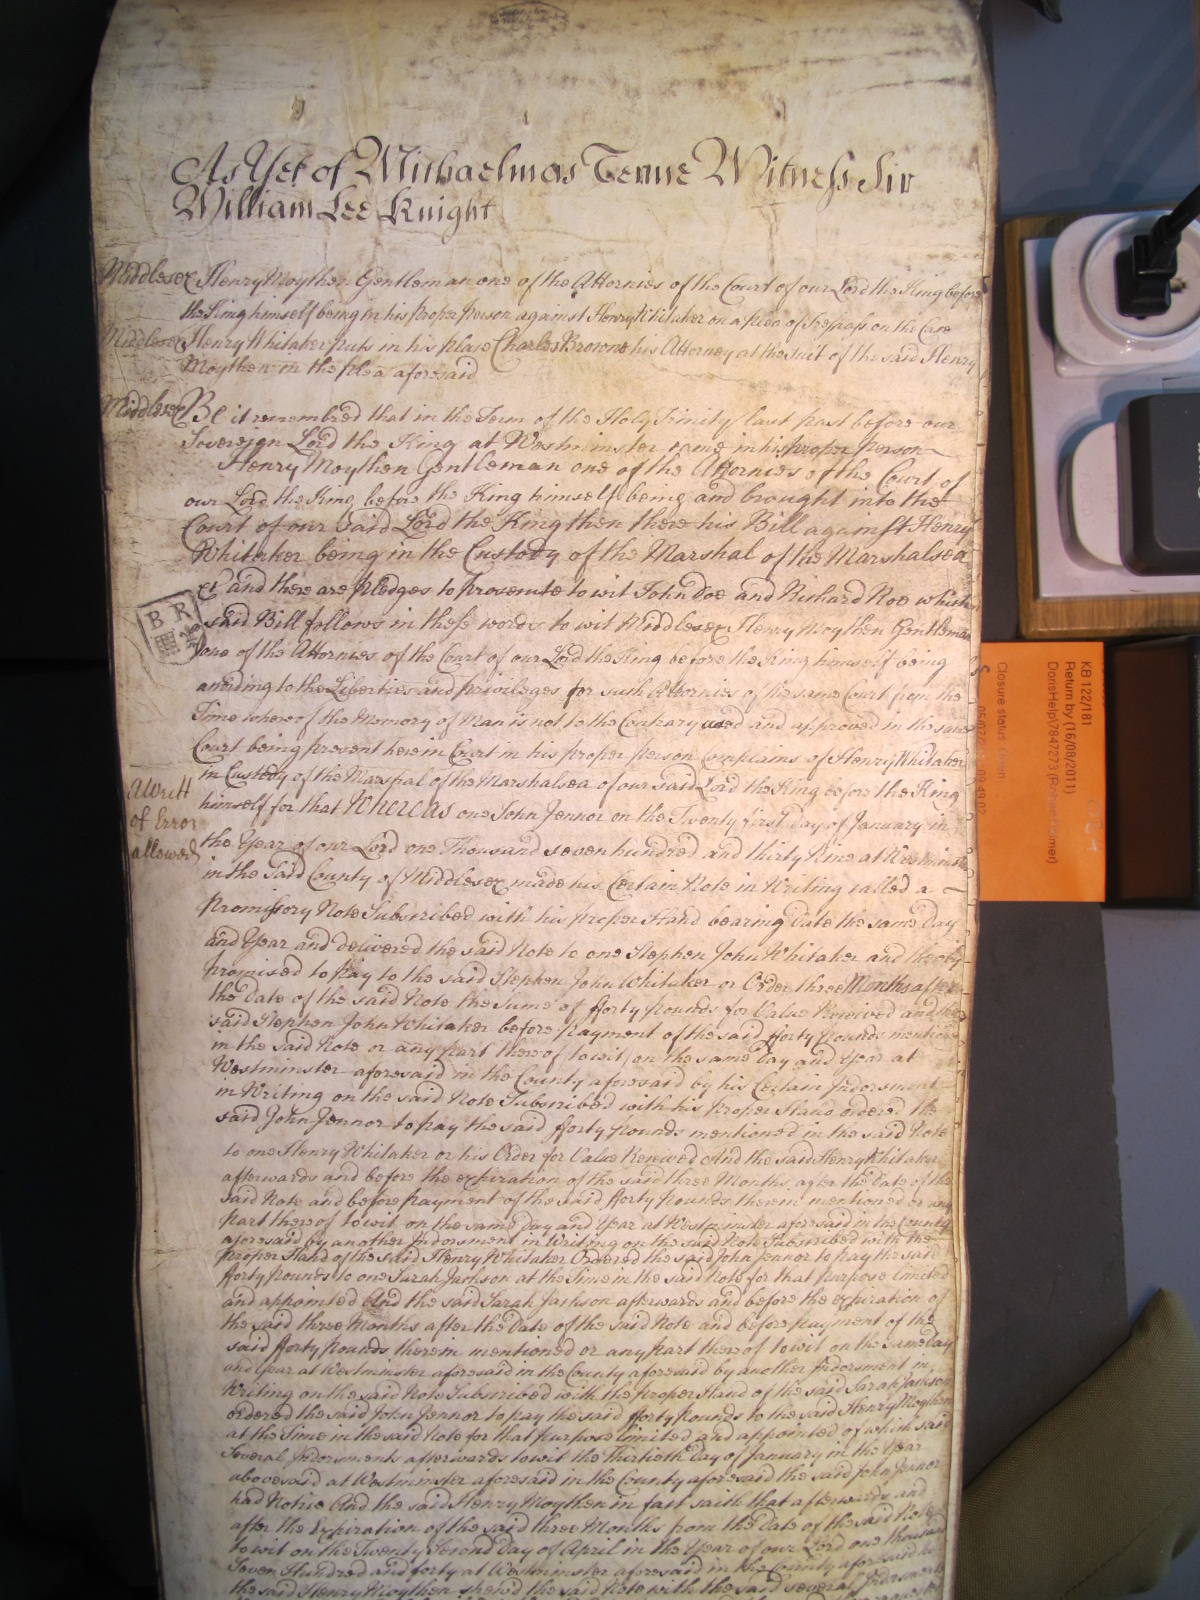 As Yet of Michaelmas Terme Witness Sir
William Lee Knight
Middlesex Henry Moythen Gentleman one of the Attornies of the Court of our Lord the King before
the King himself being in his proper person against Henry Whitaker on a plea of Trespass on the Case
Middlesex Henry Whitaker puts in his place Charles Browne his Attorney at the suit of the said Henry
Moythen in the plea aforesaid
Middlesex Be it remembred that in the Term of the Holy Trinity last past before our
Sovereign Lord the King at Westminster came in his proper person
Henry Moythen Gentleman one of the Attornies of the Court of
our Lord the King before the King himself being and brought into the
Court of our said Lord the King then there his Bill against Henry
Whitaker being in the Custody of the Marshal of the Marshalsea
&c and there are pledges to prosecute to wit John Doe and Richard Roe which
said Bill follows in these words to wit Middlesex Henry Moythen Gentleman
B R
one of the Attornies of the Court of our Lord the King before the King himself being
according to the Liberties and priviledges for such Attornies of the same Court from the
Time whereof the Memory of Man is not to the Contrary used and approved in the same
Court being present here in Court in his proper person complains of Henry Whitaker
in Custody of the Marshal of the Marshalsea of our said Lord the King before the King
A Writt
of Error
allowed
himself for that Whereas one John Jennor on the Twenty first Day of January in
the Year of our Lord one Thousand seven hundred and thirty Nine at Westminster
in the said County of Middlesex made his Certain Note in Writing called a
promissory Note Subscribed with his proper Hand bearing Date the same Day
and Year and delivered the said Note to one Stephen John Whitaker and thereby
promised to pay to the said Stephen John Whitaker or Order three Months after
the Date of the said Note the Sume of fforty pounds for Value Received and the
said Stephen John Whitaker before payment of the said fforty pounds mentioned
in the said Note or any part thereof to wit on the same Day and Year at
Westminster aforesaid in the County aforesaid by his Certain Indorsment
in Writing on the said Note Subscribed with his proper Hand ordered the
said John Jennor to pay the said fforty pounds mentioned in the said Note
to one Henry Whitaker or his Order for Value Received And the said Henry Whitaker
afterwards and before the expiration of the said three Months after the Date of the
said Note and before payment of the said fforty pounds therein mentioned or any
part thereof to wit on the same Day and Year at Westminster aforesaid in the County
aforesaid by another Indorsment in Writing on the said Note Subscribed with the
proper Hand of the said Henry Whitaker Ordered the said John Jennor to pay the said
fforty pounds to one Sarah Jackson at the Time in the said Note for that purpose limited
and appointed And the said Sarah Jackson afterwards and before the expiration of
the said three Months after the Date of the said Note and before payment of the
said fforty pounds therein mentioned or any part thereof to wit on the same Day
and Year at Westminster aforesaid in the County aforesaid by another Indorsment in
Writing on the said Note Subscribed with the proper Hand of the said Sarah Jackson
ordered the said John Jennor to pay the said fforty pounds to the said Henry Moythen
at the Time in the said Note for that purpose limited and appointed of which said
Several Indorsments afterwards to wit the Thirtieth Day of January in the Year
abovesaid at Westminster aforesaid in the County aforesaid the said John Jennor
had Notice And the said Henry Moythen in fact saith that afterwards and
after the Expiration of the said three Months from the Date of the said Note
to wit on the Twenty Second Day of April in the Year of our Lord one thousand
Seven Hundred and forty at Westminster aforesaid in the County aforesaid he
the said Henry Moythen shewed the said Note with the said several Indorsments
KB 122/181
Return by (16/08/2011)
DorisHelp\7847273
Closure status: